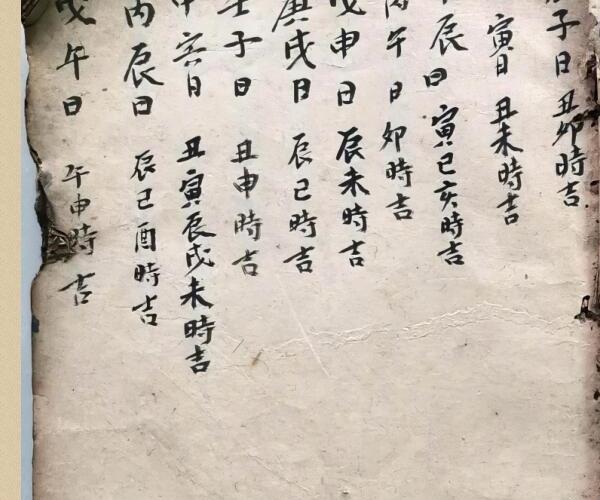 子日 丑卯時吉
寅日 丑未時吉
辰日 寅巳亥時吉
丙午日 卯時吉
戊申日 辰未時吉
庚戌日 辰巳時吉
壬子日 丑申時吉
甲寅日 丑寅辰戌未時吉
丙辰日 辰巳酉時吉
戊午日 午申時吉